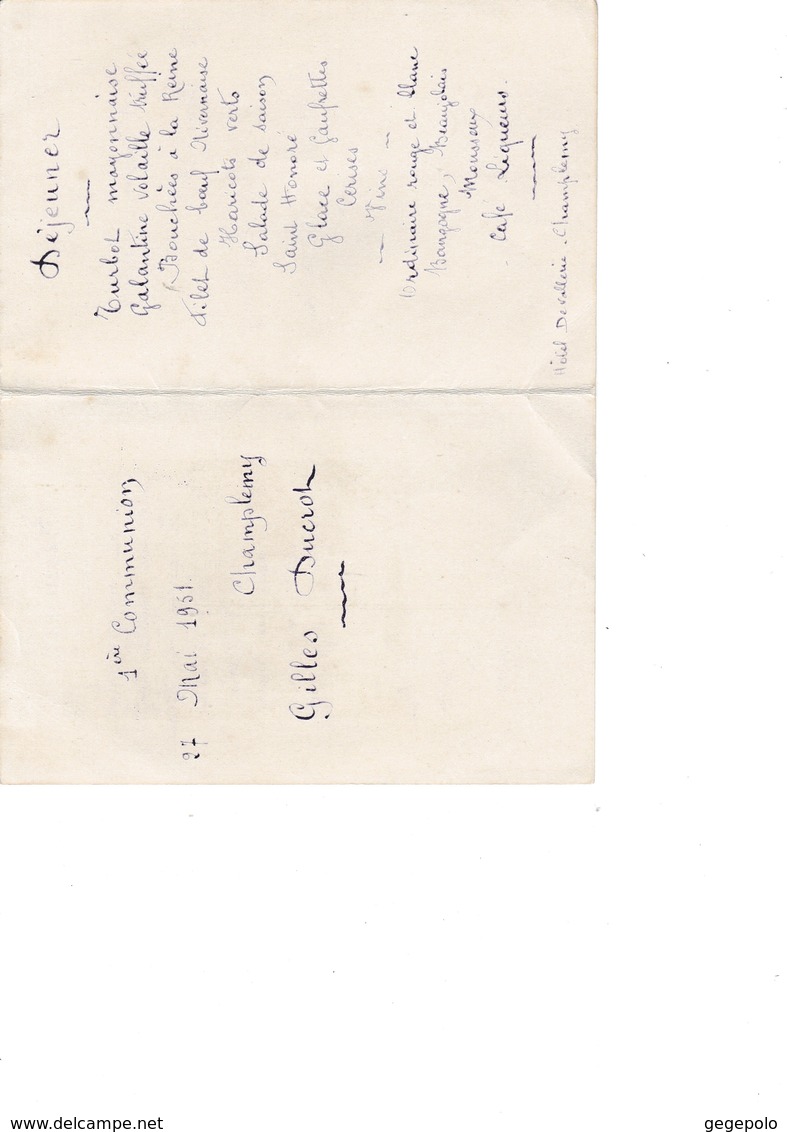 1ère Communion
27 Mai 1951.
Champlemy
Gilles Ducrot
Déjeuner
Turbot mayonnaise
Galantine volaille truffée
Bouchées à la Reine
Filet de bœuf Nivernaise
Haricots verts
Salade de saison
Saint Honoré
Glace et Gaufrettes
Cerises
- Vins -
Ordinaire rouge et blanc
Bourgogne, Beaujolais
Mousseux
- Café Liqueurs -
Hôtel Devallerie - Champlemy
www.delcampe.net
gegepolo